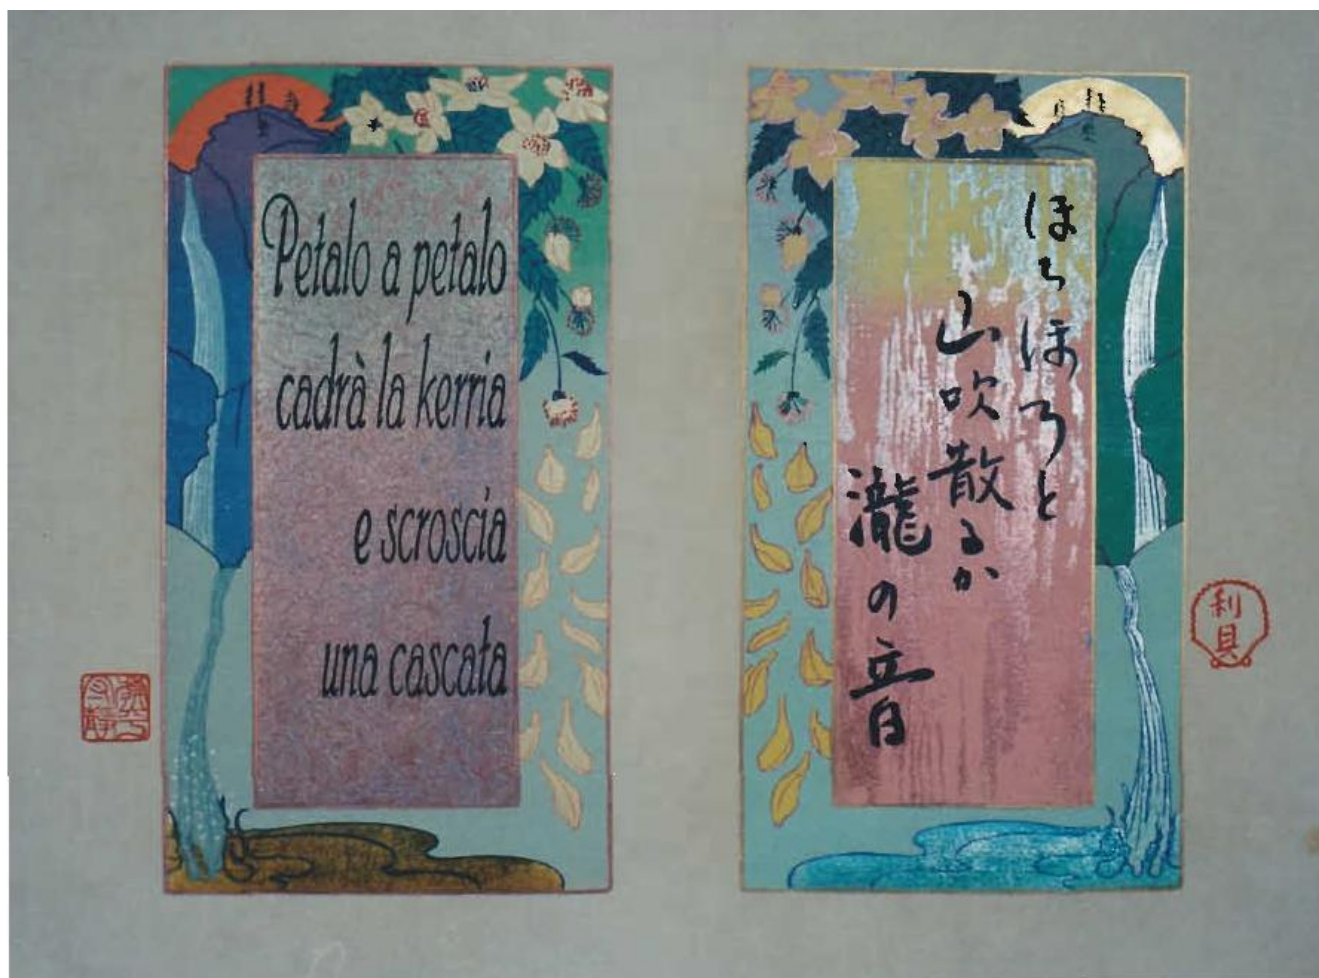 Petalo a petalo
cadrà la kerria
e scroscia
una cascata
ほろほろと
山吹散るか
瀧の音